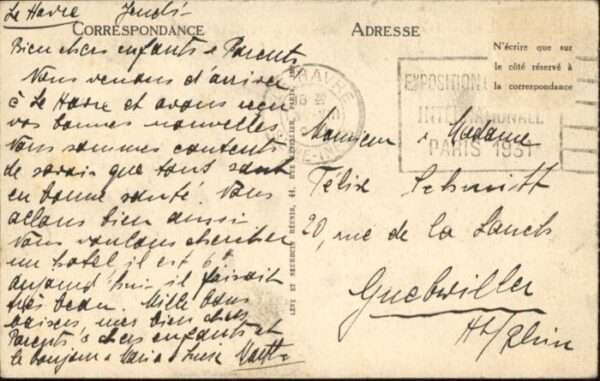 Le Havre Jeudi
CORRESPONDANCE
Bien chers enfants & Parents
Nous venons d'arriver
à Le Havre et avons reçu
vos bonnes nouvelles.
Nous sommes contents
de savoir que tous sont
en bonne santé. Nous
allons bien aussi
Nous voulons chercher
un hotel il est 6h
aujourd'hui il faisait
très beau. Mille bons
baisers, mes bien chers
Parents & chers enfants et
le bonjour à Maria &
LEVY ET NEURDEIN RÉUNIS, 44, RUE LETELLIER, PARIS
ADRESSE
N'écrire que sur
le côté réservé à
la correspondance
HAVRE
EXPOSITION
INTERNATIONALE
PARIS 1931
Monsieur & Madame
Félix Schmitt
20, rue de la Lauch
Guebwiller
Ht/Rhin